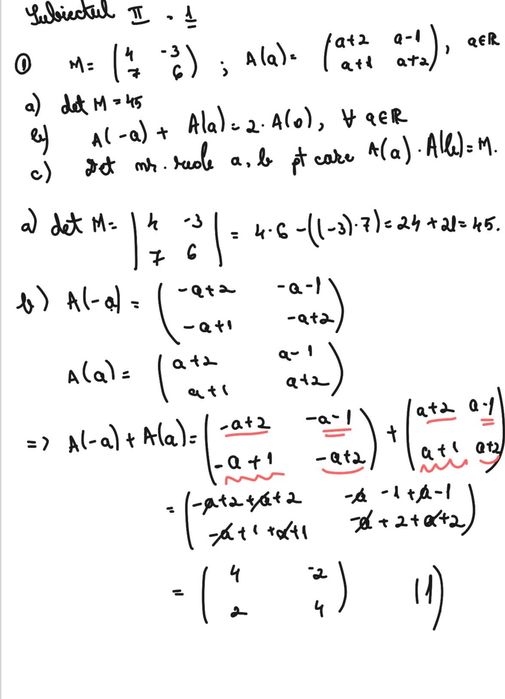 Subiectul II - 1
① M = (4 -3 ; 7 6) ; A(a) = (a+2 a-1 ; a+1 a+2), a∈ℝ
a) det M = 45
b) A(-a) + A(a) = 2·A(0), ∀ a∈ℝ
c) Det nr. reale a, b pt care A(a)·A(b) = M.
a) det M = |4 -3 ; 7 6| = 4·6 - ((-3)·7) = 24 + 21 = 45.
b) A(-a) = (-a+2 -a-1 ; -a+1 -a+2)
A(a) = (a+2 a-1 ; a+1 a+2)
=> A(-a) + A(a) = (-a+2 -a-1 ; -a+1 -a+2) + (a+2 a-1 ; a+1 a+2)
= (-a+2+a+2 -a-1+a-1 ; -a+1+a+1 -a+2+a+2)
= (4 -2 ; 2 4) (1)